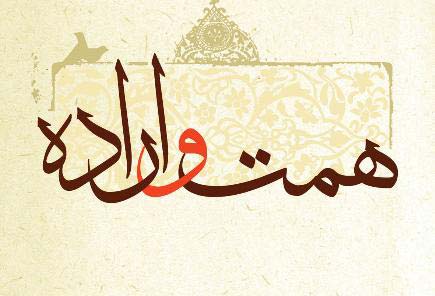 همت و اراده